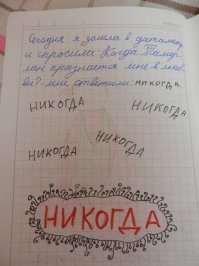 Сегодня я зашла в фатимку
и спросила: Когда Тамир-
лан признается мне в люб-
ви? - мне ответили: НИКОГДА.
НИКОГДА НИКОГДА
НИКОГДА НИКОГДА
НИКОГДА